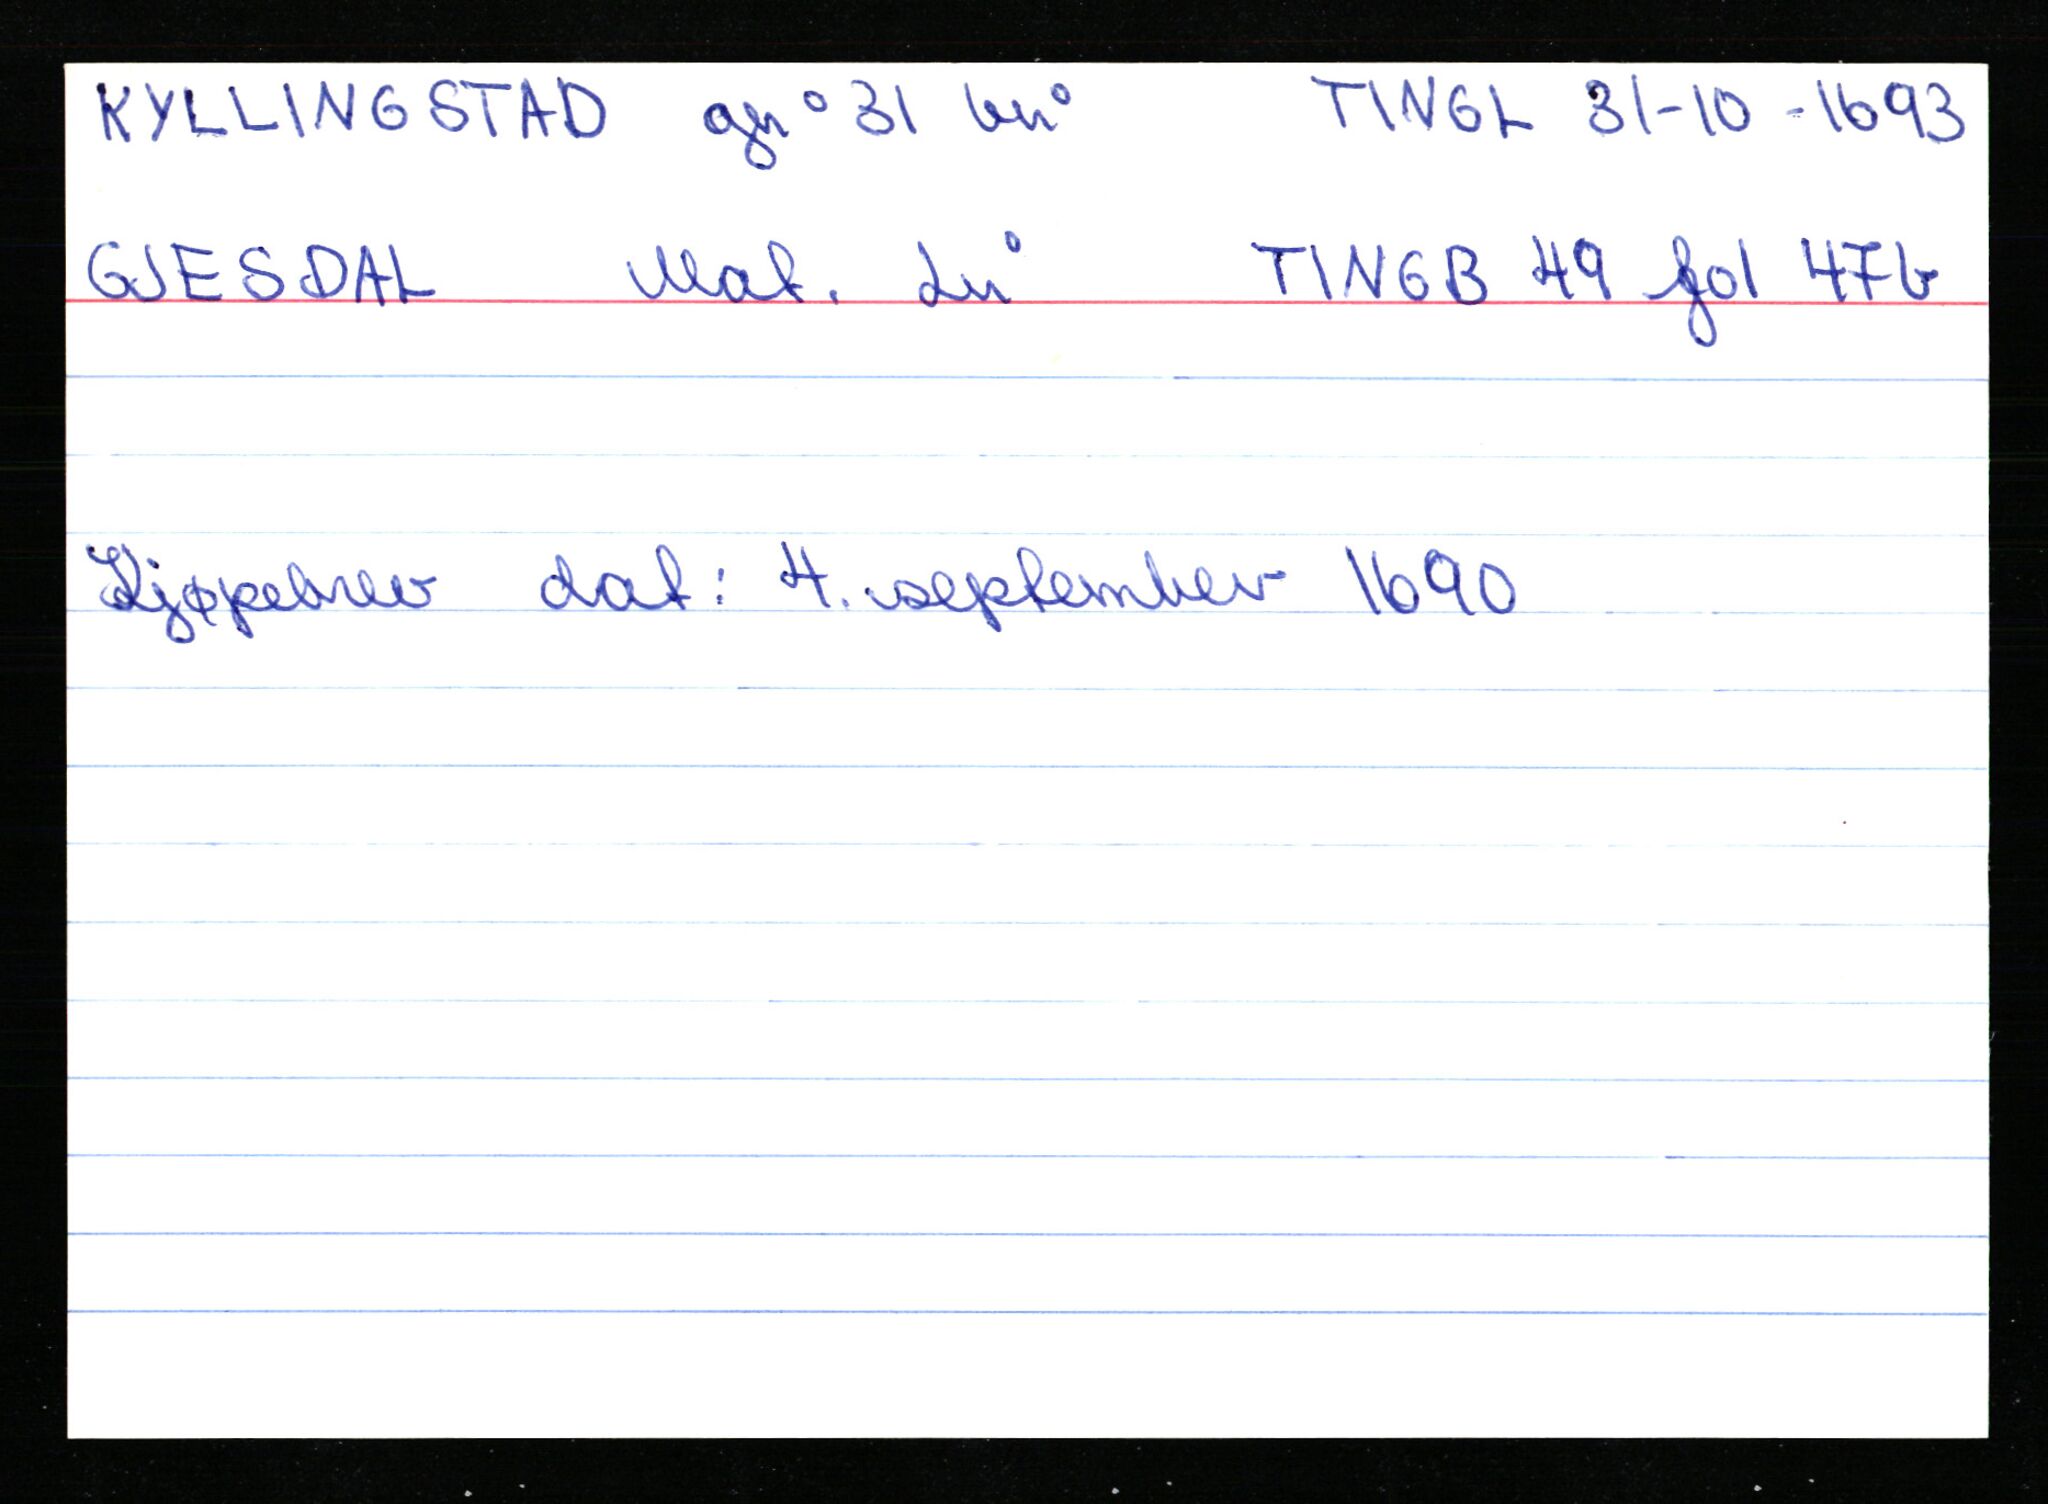 KYLLINGSTAD gn° 31 bn° TINGL 31-10-1693
GJESDAL Mat. Ln° TINGB 49 fol 47b
Kjøpebrev dat: 4. september 1690